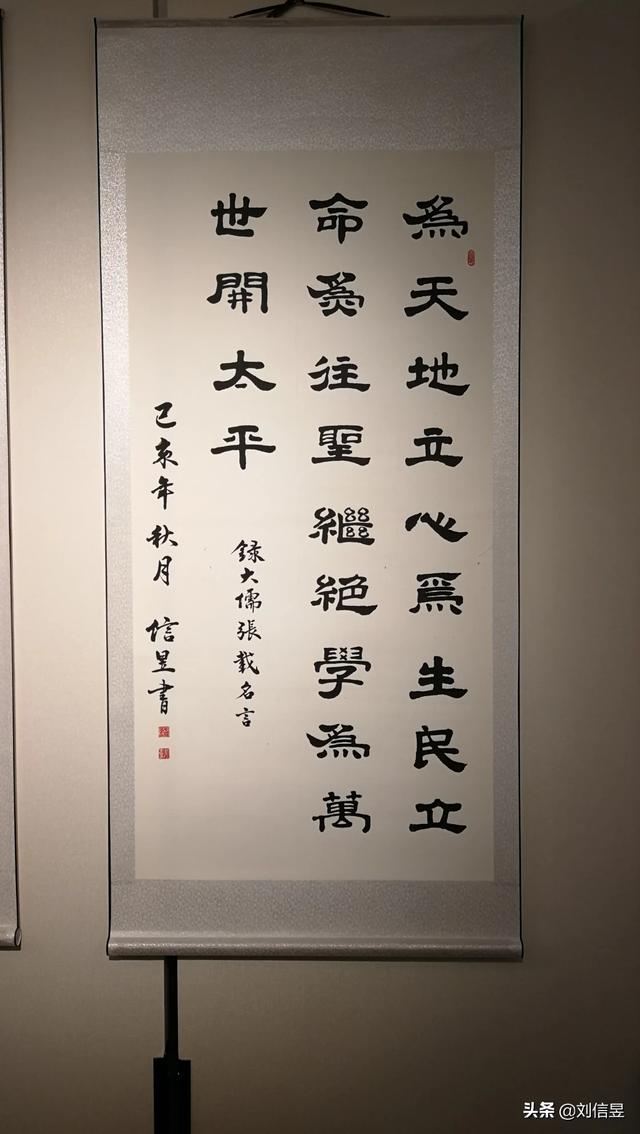 為天地立心爲生民立
命為往聖繼絕學為萬
世開太平
録大儒張載名言
己亥年秋月 信昱書
头条 @刘信昱